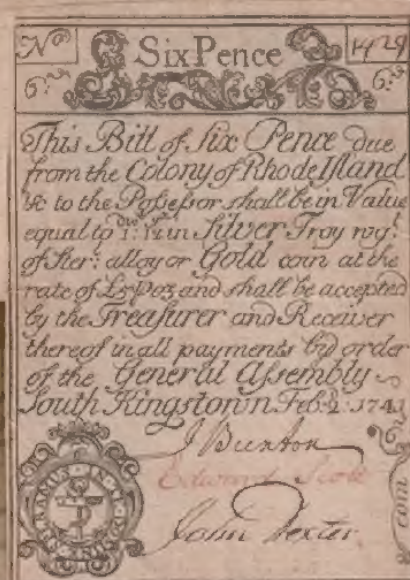 No Six Pence 1429
6:d 6:d
This Bill of Six Pence due
from the Colony of Rhode Island
&c to the Possessor shall be in Value
equal to in Silver Troy wgt
of Ster: alloy or Gold coin at the
rate of and shall be accepted
by the Treasurer and Receiver
thereof in all payments by order
of the General Assembly
South Kingstown Feb: 2 1741
Edward Scott
John Dexter